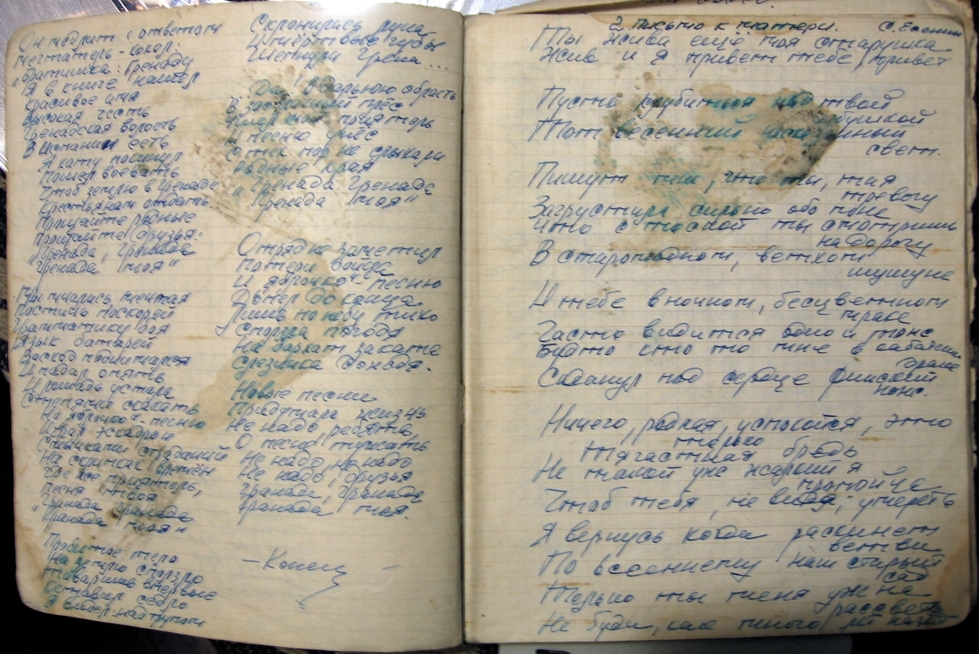 Он медлит с ответом
Мечтатель-хохол:
"Братишка! Гренаду
Я в книге нашел
Красивое имя
Высокая честь
Гренадская волость
В Испании есть
Я хату покинул
Пошел воевать
Чтоб землю в Гренаде
Крестьянам отдать
Прощайте родные
Прощайте друзья:
"Гренада, Гренада
Гренада моя"
Мы мчались, мечтая
Постичь поскорей
Грамматику боя
Язык батарей
Восход подымался
И падал опять
И лошадь устала
Степями скакать
Но яблочко-песню
Играл эскадрон
Смычками страданий
На скрипках времён
Где же приятель,
Песня твоя
"Гренада Гренада
Гренада моя"
Пробитое тело
На землю сползло
Товарищ впервые
Оставил седло
Я видел над трупом
Склонилась луна
И мёртвые губы
Шепнули Грена...
Да в дальнюю область
В заоблачный плёс
Ушел мой приятель
И песню унёс
С тех пор не слыхали
Родные края
"Гренада Гренада
Гренада моя"
Отряд не заметил
Потери бойца
И яблочко песню
Допел до конца
Лишь по небу тихо
Сползла погодя
На бархат заката
Слезинка дождя.
Новые песни
Придумала жизнь
Не надо ребята
О песне тужить
Не надо, не надо
Не надо, друзья
Гренада, Гренада
Гренада моя.
- Конец -
2. Письмо к матери. С. Есенин
Ты жива ещё моя старушка
Жив и я привет тебе, привет
Пусть струится над твоей
избушкой
Тот весенний несказанный
свет.
Пишут мне, что ты, тая
тревогу
Загрустила сильно обо мне
Что с тоской ты смотришь
на дорогу
В старомодном, ветхом
шушуне
И тебе в ночном, бесцветном
мраке
Часто видится одно и тоже
Будто кто то мне в кабацкой
драке
Саданул под сердце финский
нож.
Ничего, родная, успокойся, это
только
Тягостная бредь
Не такой уже жалкий я
пропойца
Чтоб тебя, не видя, умереть
Я вернусь когда раскинет
ветви
По весеннему наш старый
сад
Только ты меня уже на
рассвете
Не буди, как много лет назад